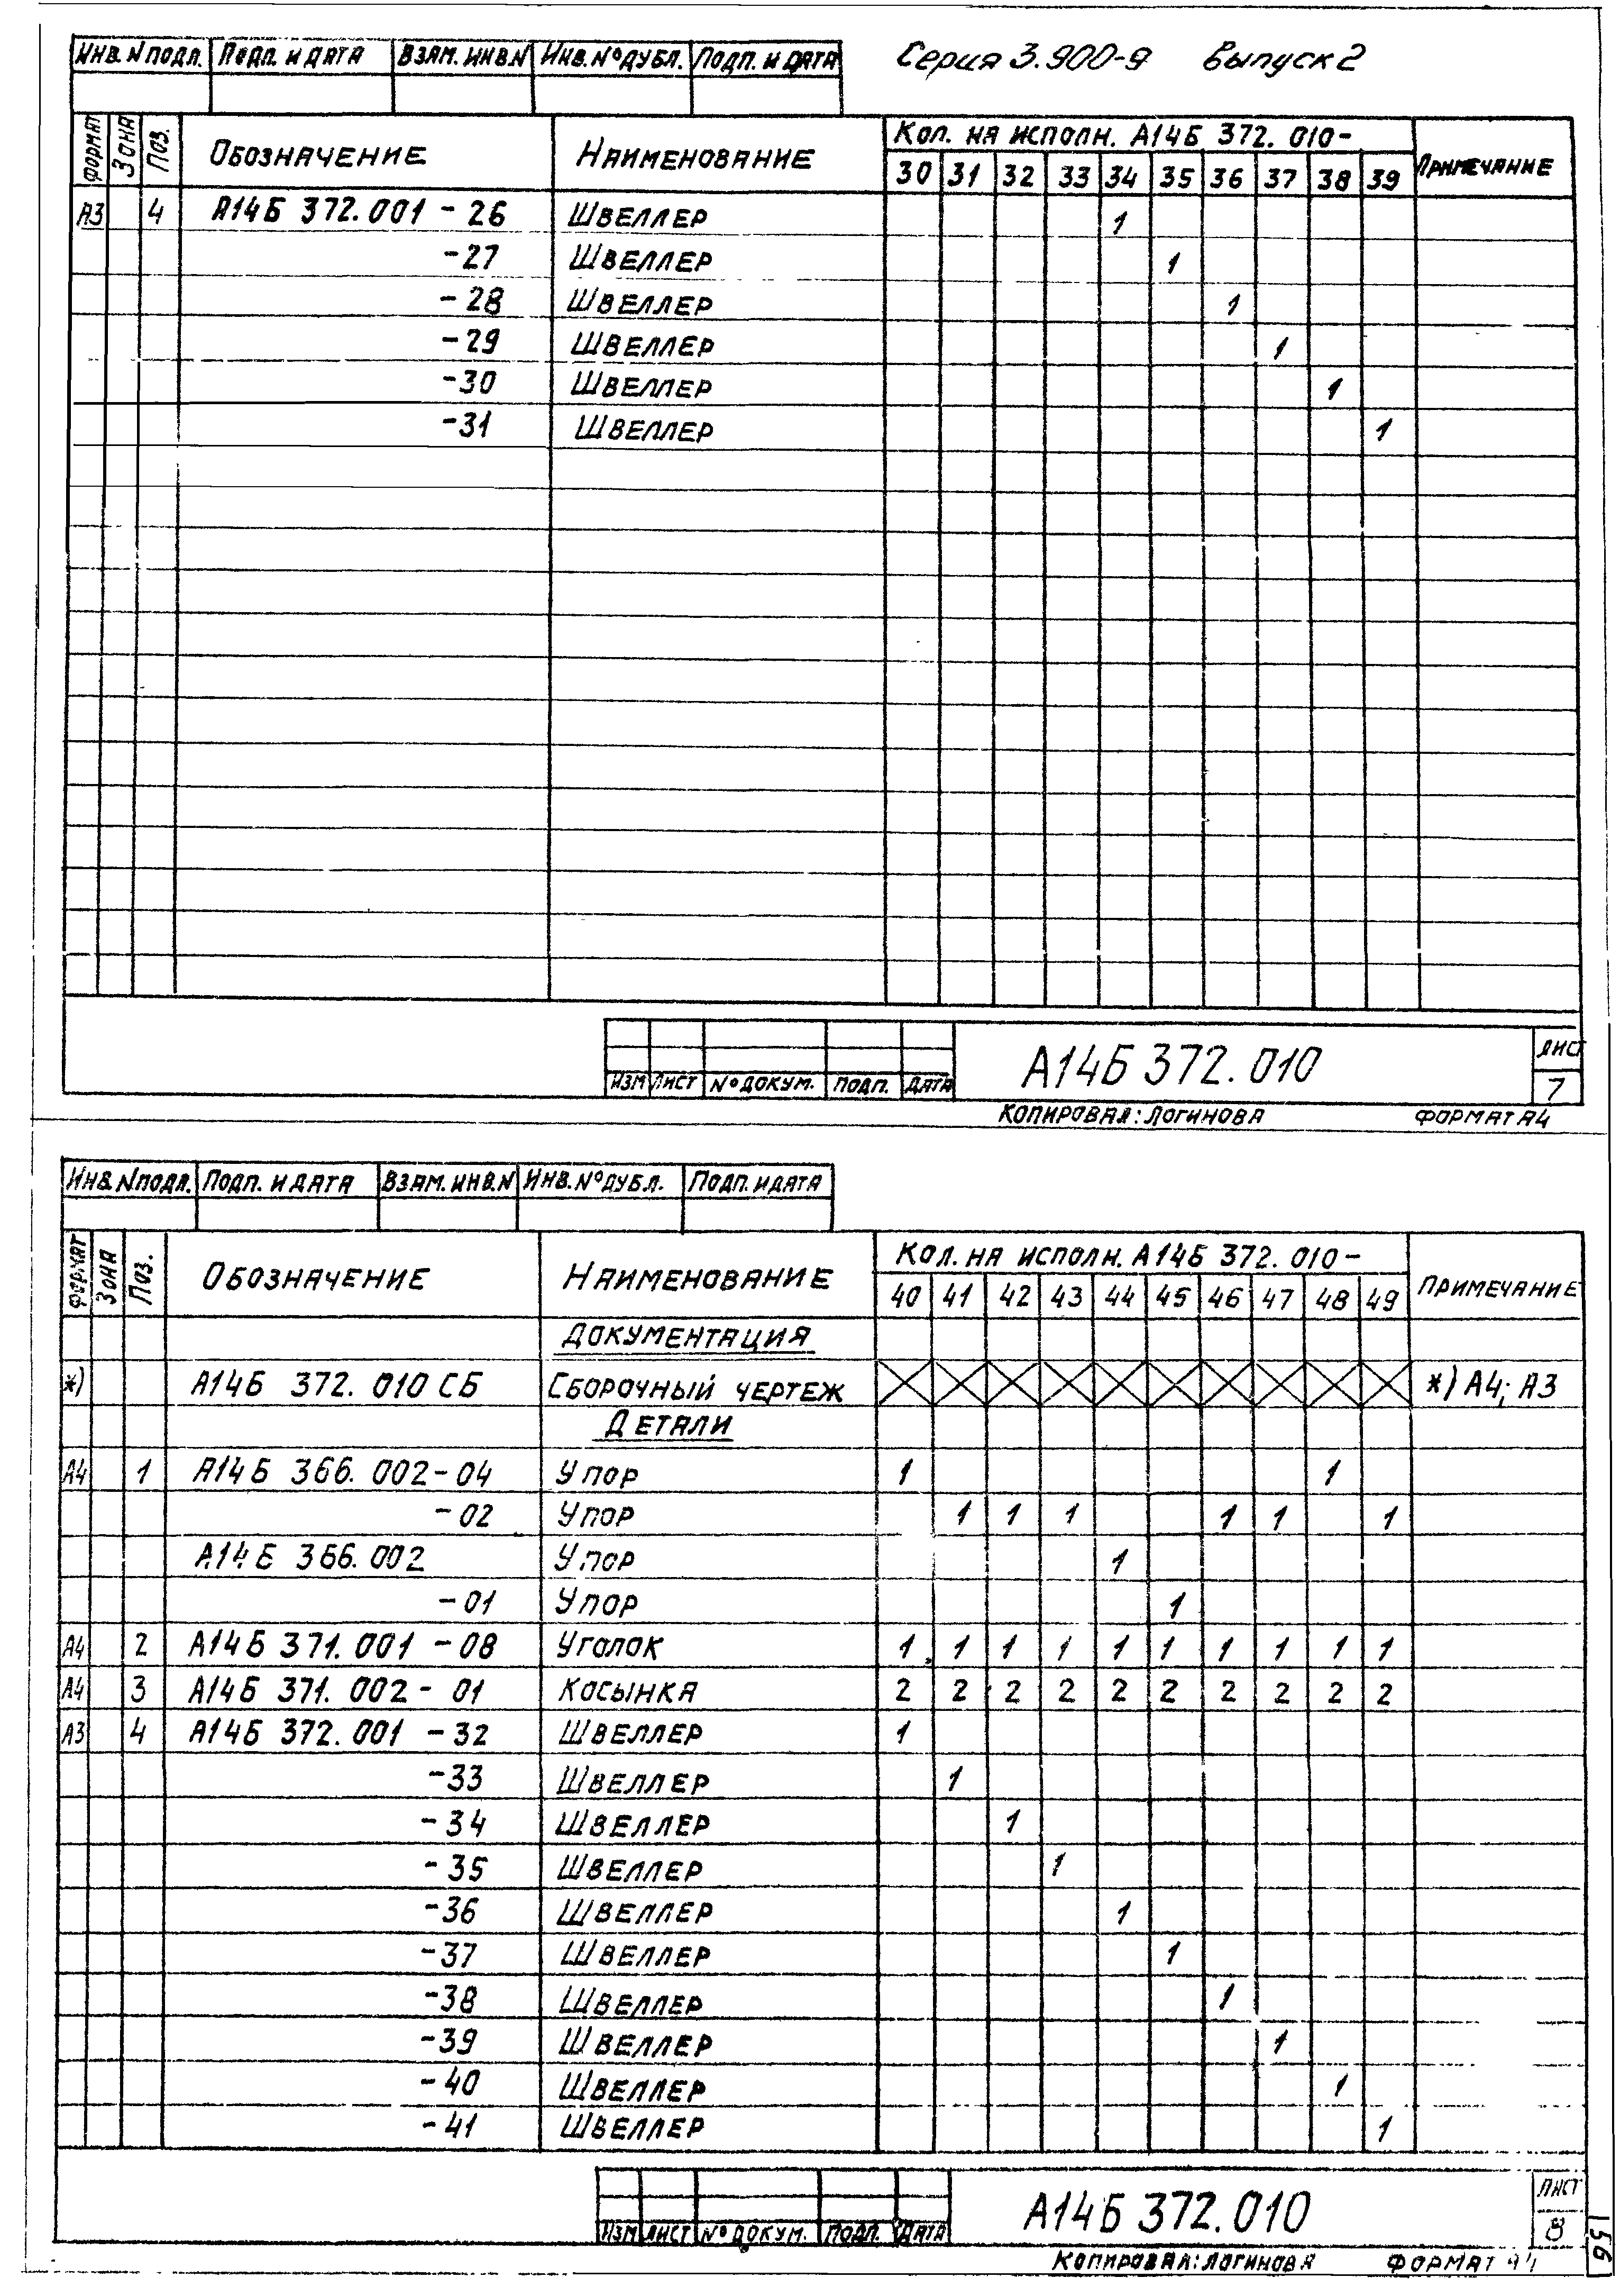 Серия 3.900-9 Выпуск 2
Инв. N подл. Подп. и дата Взам. инв. N Инв. N° дубл. Подп. и дата
Формат Зона Поз. Обозначение Наименование Кол. на исполн. А14Б 372.010- Примечание
30 31 32 33 34 35 36 37 38 39
А3 4 А14Б 372.001 - 26 Швеллер 1
-27 Швеллер 1
-28 Швеллер 1
-29 Швеллер 1
-30 Швеллер 1
-31 Швеллер 1
А14Б 372.010 Лист
Изм Лист N° докум. Подп. Дата 7
Копировал: Логинова Формат А4
Инв. N подл. Подп. и дата Взам. инв. N Инв. N° дубл. Подп. и дата
Формат Зона Поз. Обозначение Наименование Кол. на исполн. А14Б 372.010- Примечание
40 41 42 43 44 45 46 47 48 49
Документация
*) А14Б 372.010 СБ Сборочный чертеж *) А4; А3
Детали
А4 1 А14Б 366.002-04 Упор 1 1
-02 Упор 1 1 1 1 1 1
А14Б 366.002 Упор 1
-01 Упор 1
А4 2 А14Б 371.001 -08 Уголок 1 1 1 1 1 1 1 1 1 1
А4 3 А14Б 371.002- 01 Косынка 2 2 2 2 2 2 2 2 2 2
А3 4 А14Б 372.001 -32 Швеллер 1
-33 Швеллер 1
-34 Швеллер 1
-35 Швеллер 1
-36 Швеллер 1
-37 Швеллер 1
-38 Швеллер 1
-39 Швеллер 1
-40 Швеллер 1
-41 Швеллер 1
А14Б 372.010 Лист
Изм Лист N° докум. Подп. Дата 8
Копировал: Логинова Формат А4
156